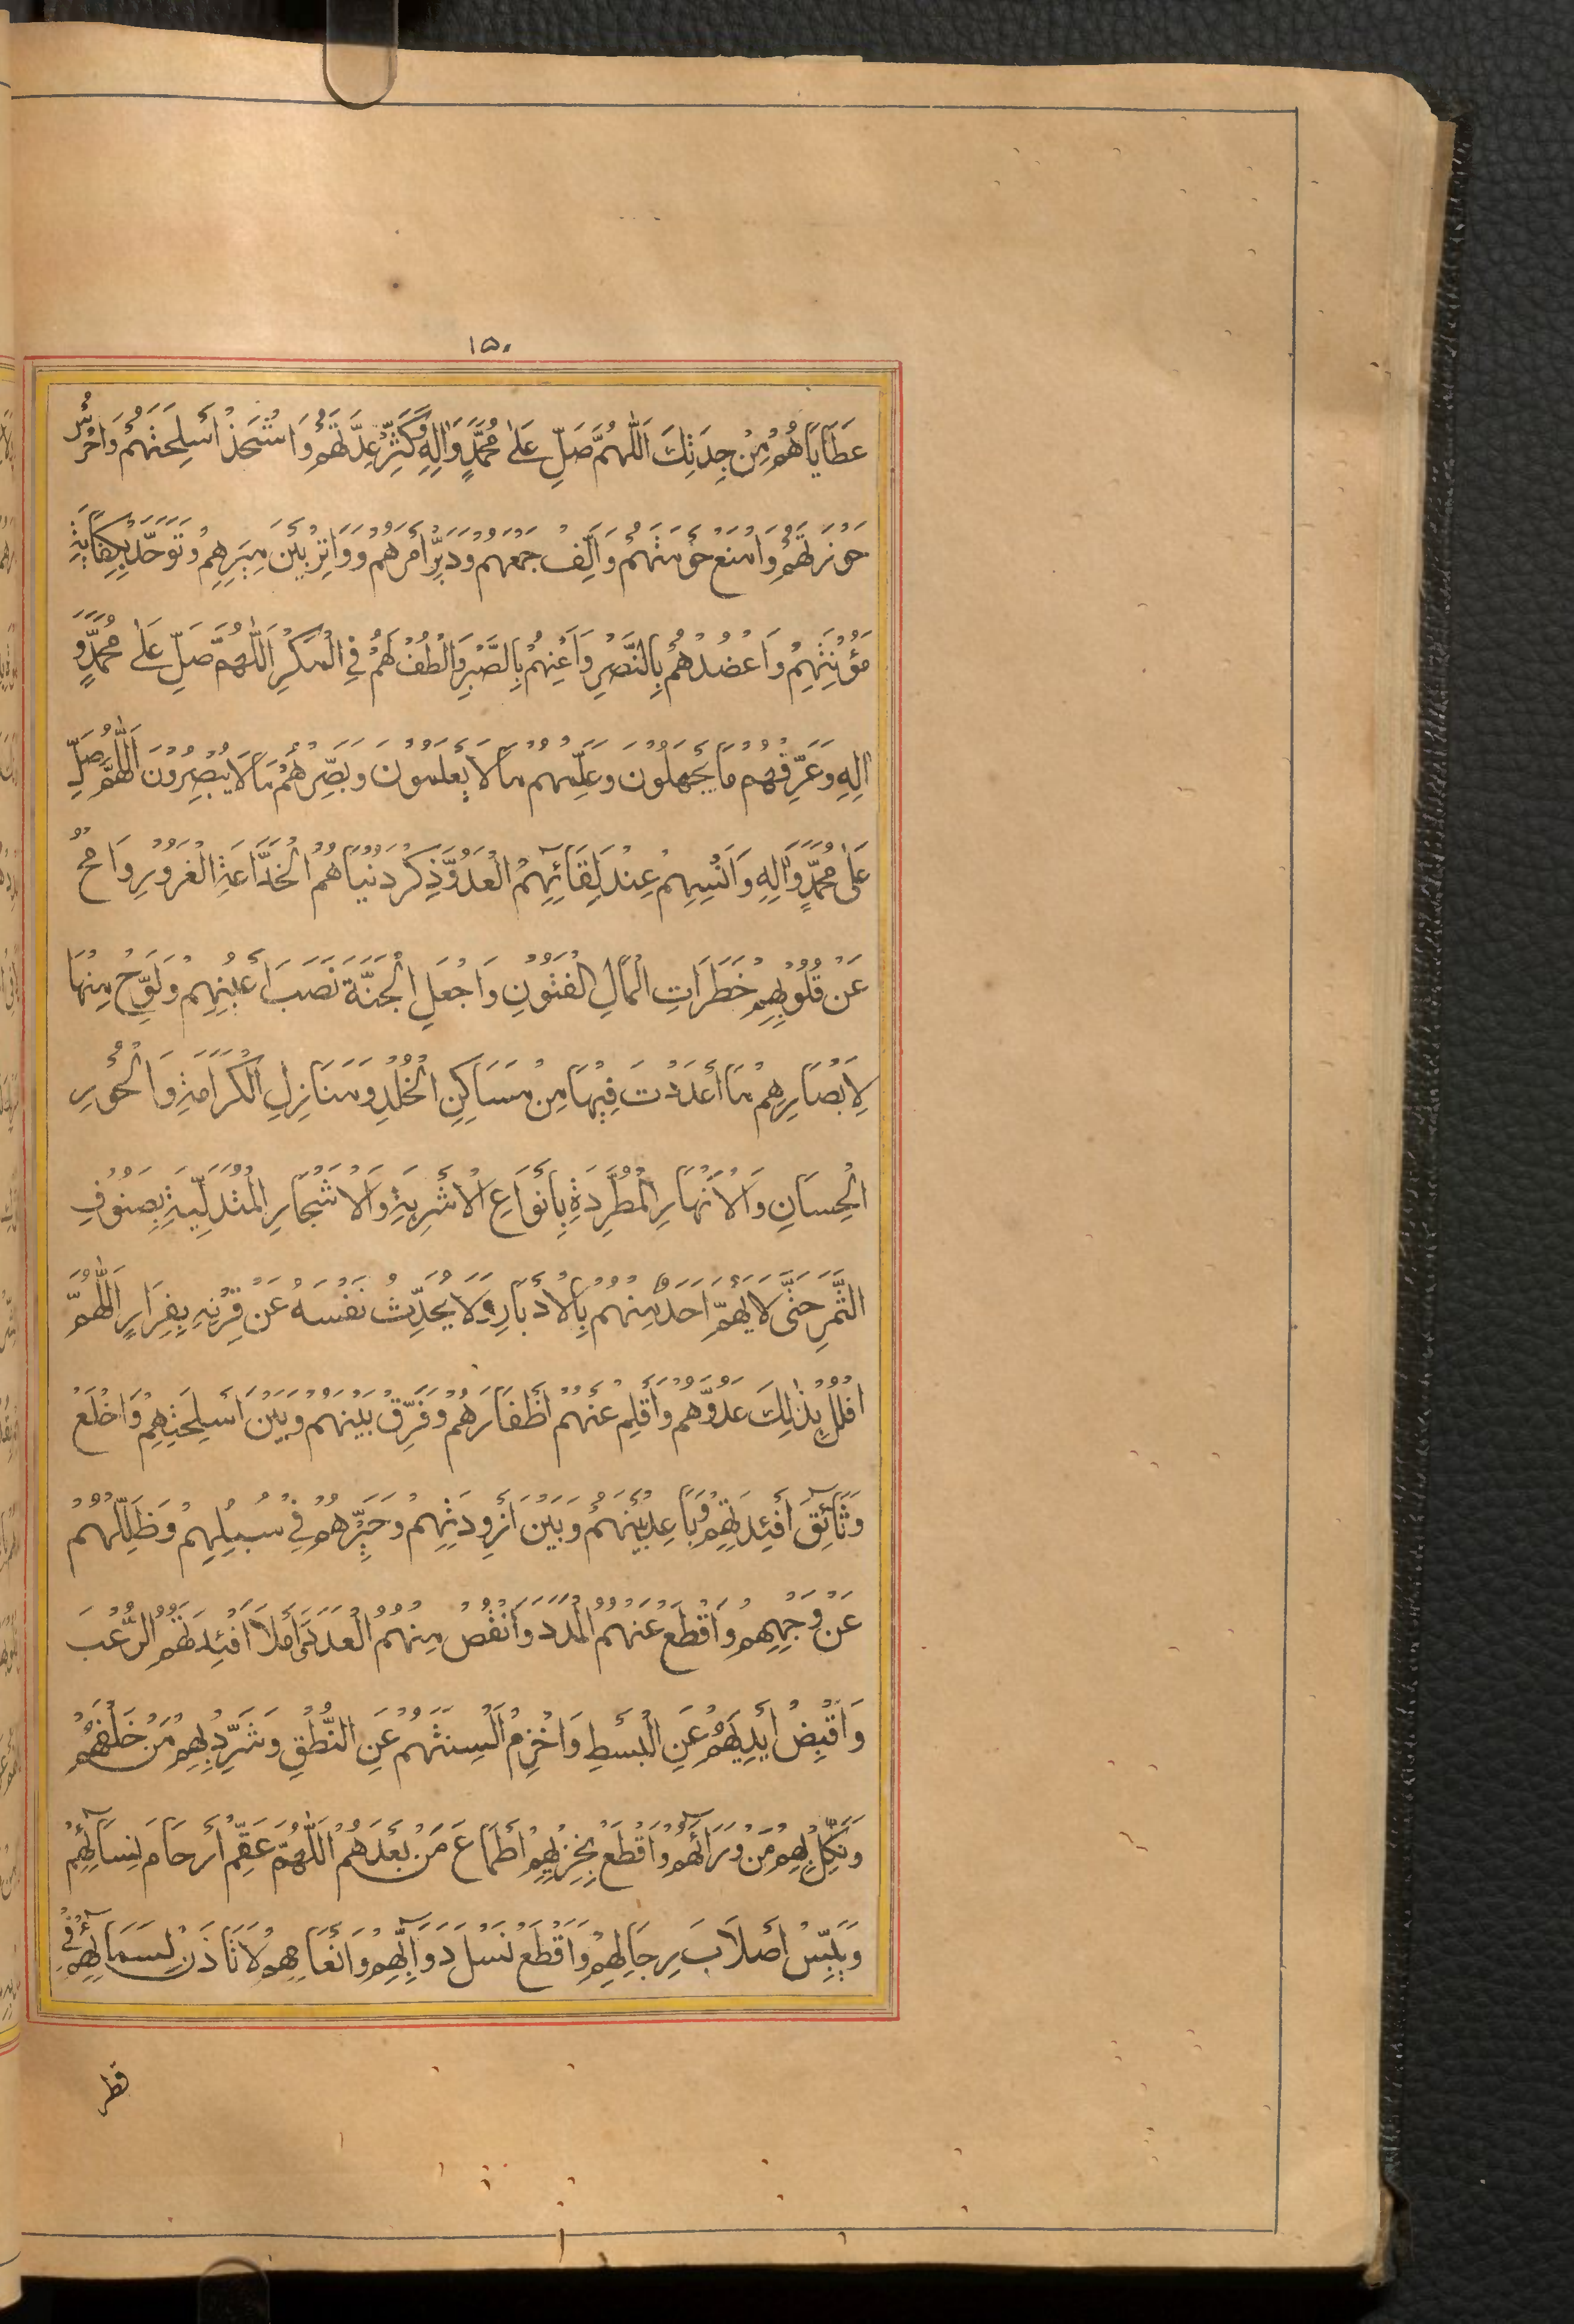 ١٥٠
عَطَايَاهُمْ مِنْ جِدَتِكَ اَللّٰهُمَّ صَلِّ عَلٰى مُحَمَّدٍ وَاٰلِهِ وَكَثِّرْ عِدَّتَهُمْ وَاشْحَذْ اَسْلِحَتَهُمْ وَاحْرُسْ
حَوْزَتَهُمْ وَامْنَعْ حَوْمَتَهُمْ وَاَلِّفْ جَمْعَهُمْ وَدَبِّرْ اَمْرَهُمْ وَوَاتِرْ بَيْنَ مِيَرِهِمْ وَتَوَحَّدْ بِكِفَايَةِ
مَؤُنَتِهِمْ وَاعْضُدْهُمْ بِالنَّصْرِ وَاَعِنْهُمْ بِالصَّبْرِ وَالْطُفْ لَهُمْ فِي الْمَكْرِ اَللّٰهُمَّ صَلِّ عَلٰى مُحَمَّدٍ وَ
اٰلِهِ وَعَرِّفْهُمْ مَا يَجْهَلُوْنَ وَعَلِّمْهُمْ مَا لَا يَعْلَمُوْنَ وَبَصِّرْهُمْ مَا لَا يُبْصِرُوْنَ اَللّٰهُمَّ صَلِّ
عَلٰى مُحَمَّدٍ وَاٰلِهِ وَاَنْسِهِمْ عِنْدَ لِقَائِهِمُ الْعَدُوَّ ذِكْرَ دُنْيَاهُمُ الْخَدَّاعَةِ الْغَرُوْرِ وَامْحُ
عَنْ قُلُوْبِهِمْ خَطَرَاتِ الْمَالِ الْفَتُوْنِ وَاجْعَلِ الْجَنَّةَ نَصْبَ اَعْيُنِهِمْ وَلَوِّحْ مِنْهَا
لِاَبْصَارِهِمْ مَا اَعْدَدْتَ فِيْهَا مِنْ مَسَاكِنِ الْخُلْدِ وَمَنَازِلِ الْكَرَامَةِ وَالْحُوْرِ
الْحِسَانِ وَالْاَنْهَارِ الْمُطَّرِدَةِ بِاَنْوَاعِ الْاَشْرِبَةِ وَالْاَشْجَارِ الْمُتَدَلِّيَةِ بِصُنُوْفِ
الثَّمَرِ حَتّٰى لَا يَهُمَّ اَحَدٌ مِنْهُمْ بِالْاِدْبَارِ وَلَا يُحَدِّثَ نَفْسَهُ عَنْ قِرْنِهِ بِفِرَارٍ اَللّٰهُمَّ
افْلُلْ بِذٰلِكَ عَدُوَّهُمْ وَاَقْلِمْ عَنْهُمْ اَظْفَارَهُمْ وَفَرِّقْ بَيْنَهُمْ وَبَيْنَ اَسْلِحَتِهِمْ وَاخْلَعْ
وَثَائِقَ اَفْئِدَتِهِمْ وَبَاعِدْ بَيْنَهُمْ وَبَيْنَ اَزْوِدَتِهِمْ وَحَيِّرْهُمْ فِيْ سُبُلِهِمْ وَضَلِّلْهُمْ
عَنْ وَجْهِهِمْ وَاقْطَعْ عَنْهُمُ الْمَدَدَ وَانْقُصْ مِنْهُمُ الْعَدَدَ وَامْلَأْ اَفْئِدَتَهُمُ الرُّعْبَ
وَاقْبِضْ اَيْدِيَهُمْ عَنِ الْبَسْطِ وَاخْزِمْ اَلْسِنَتَهُمْ عَنِ النُّطْقِ وَشَرِّدْ بِهِمْ مَنْ خَلْفَهُمْ
وَنَكِّلْ بِهِمْ مَنْ وَرَاءَهُمْ وَاقْطَعْ بِخِزْيِهِمْ اَطْمَاعَ مَنْ بَعْدَهُمْ اَللّٰهُمَّ عَقِّمْ اَرْحَامَ نِسَائِهِمْ
وَيَبِّسْ اَصْلَابَ رِجَالِهِمْ وَاقْطَعْ نَسْلَ دَوَابِّهِمْ وَاَنْعَامِهِمْ لَا تَأْذَنْ لِسَمَائِهِمْ فِيْ
قطر